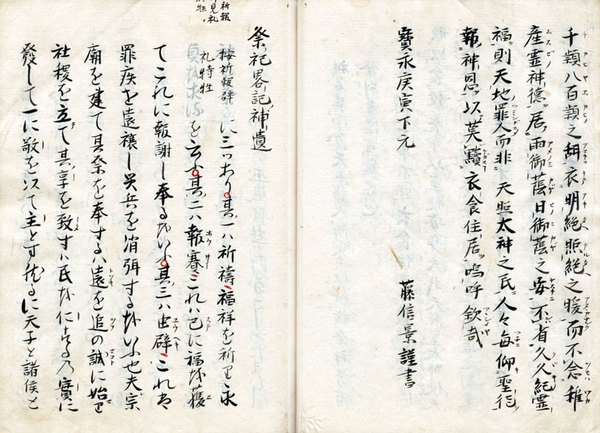 千頴八百頴之緝衣明絶照絶之暖而不念稚
産霊神徳居雨御蔭日御蔭之安不省久久紀霊
福則天地罪人而非天照太神之民人々毎仰聖徳
報神恩以莫黷衣食住居嗚呼欽哉
寶永庚寅下元
藤信景謹書
祭祀畧記補遺
按祈報辟
礼特牲に三つあり其一ハ祈祷福祥を祈り永
を云ふ其二ハ報賽これハ已に福を獲
てこれに報謝し奉るをいふ其三ハ由辟これは
罪疾を遠禳し災兵を消弭するをいふ也夫宗
廟を建て其祭を奉するハ遠を追の誠に始り
社稷を立て其享を致すハ民を仁するの實に
發して一に敬を以て主とす故に天子と諸侯と